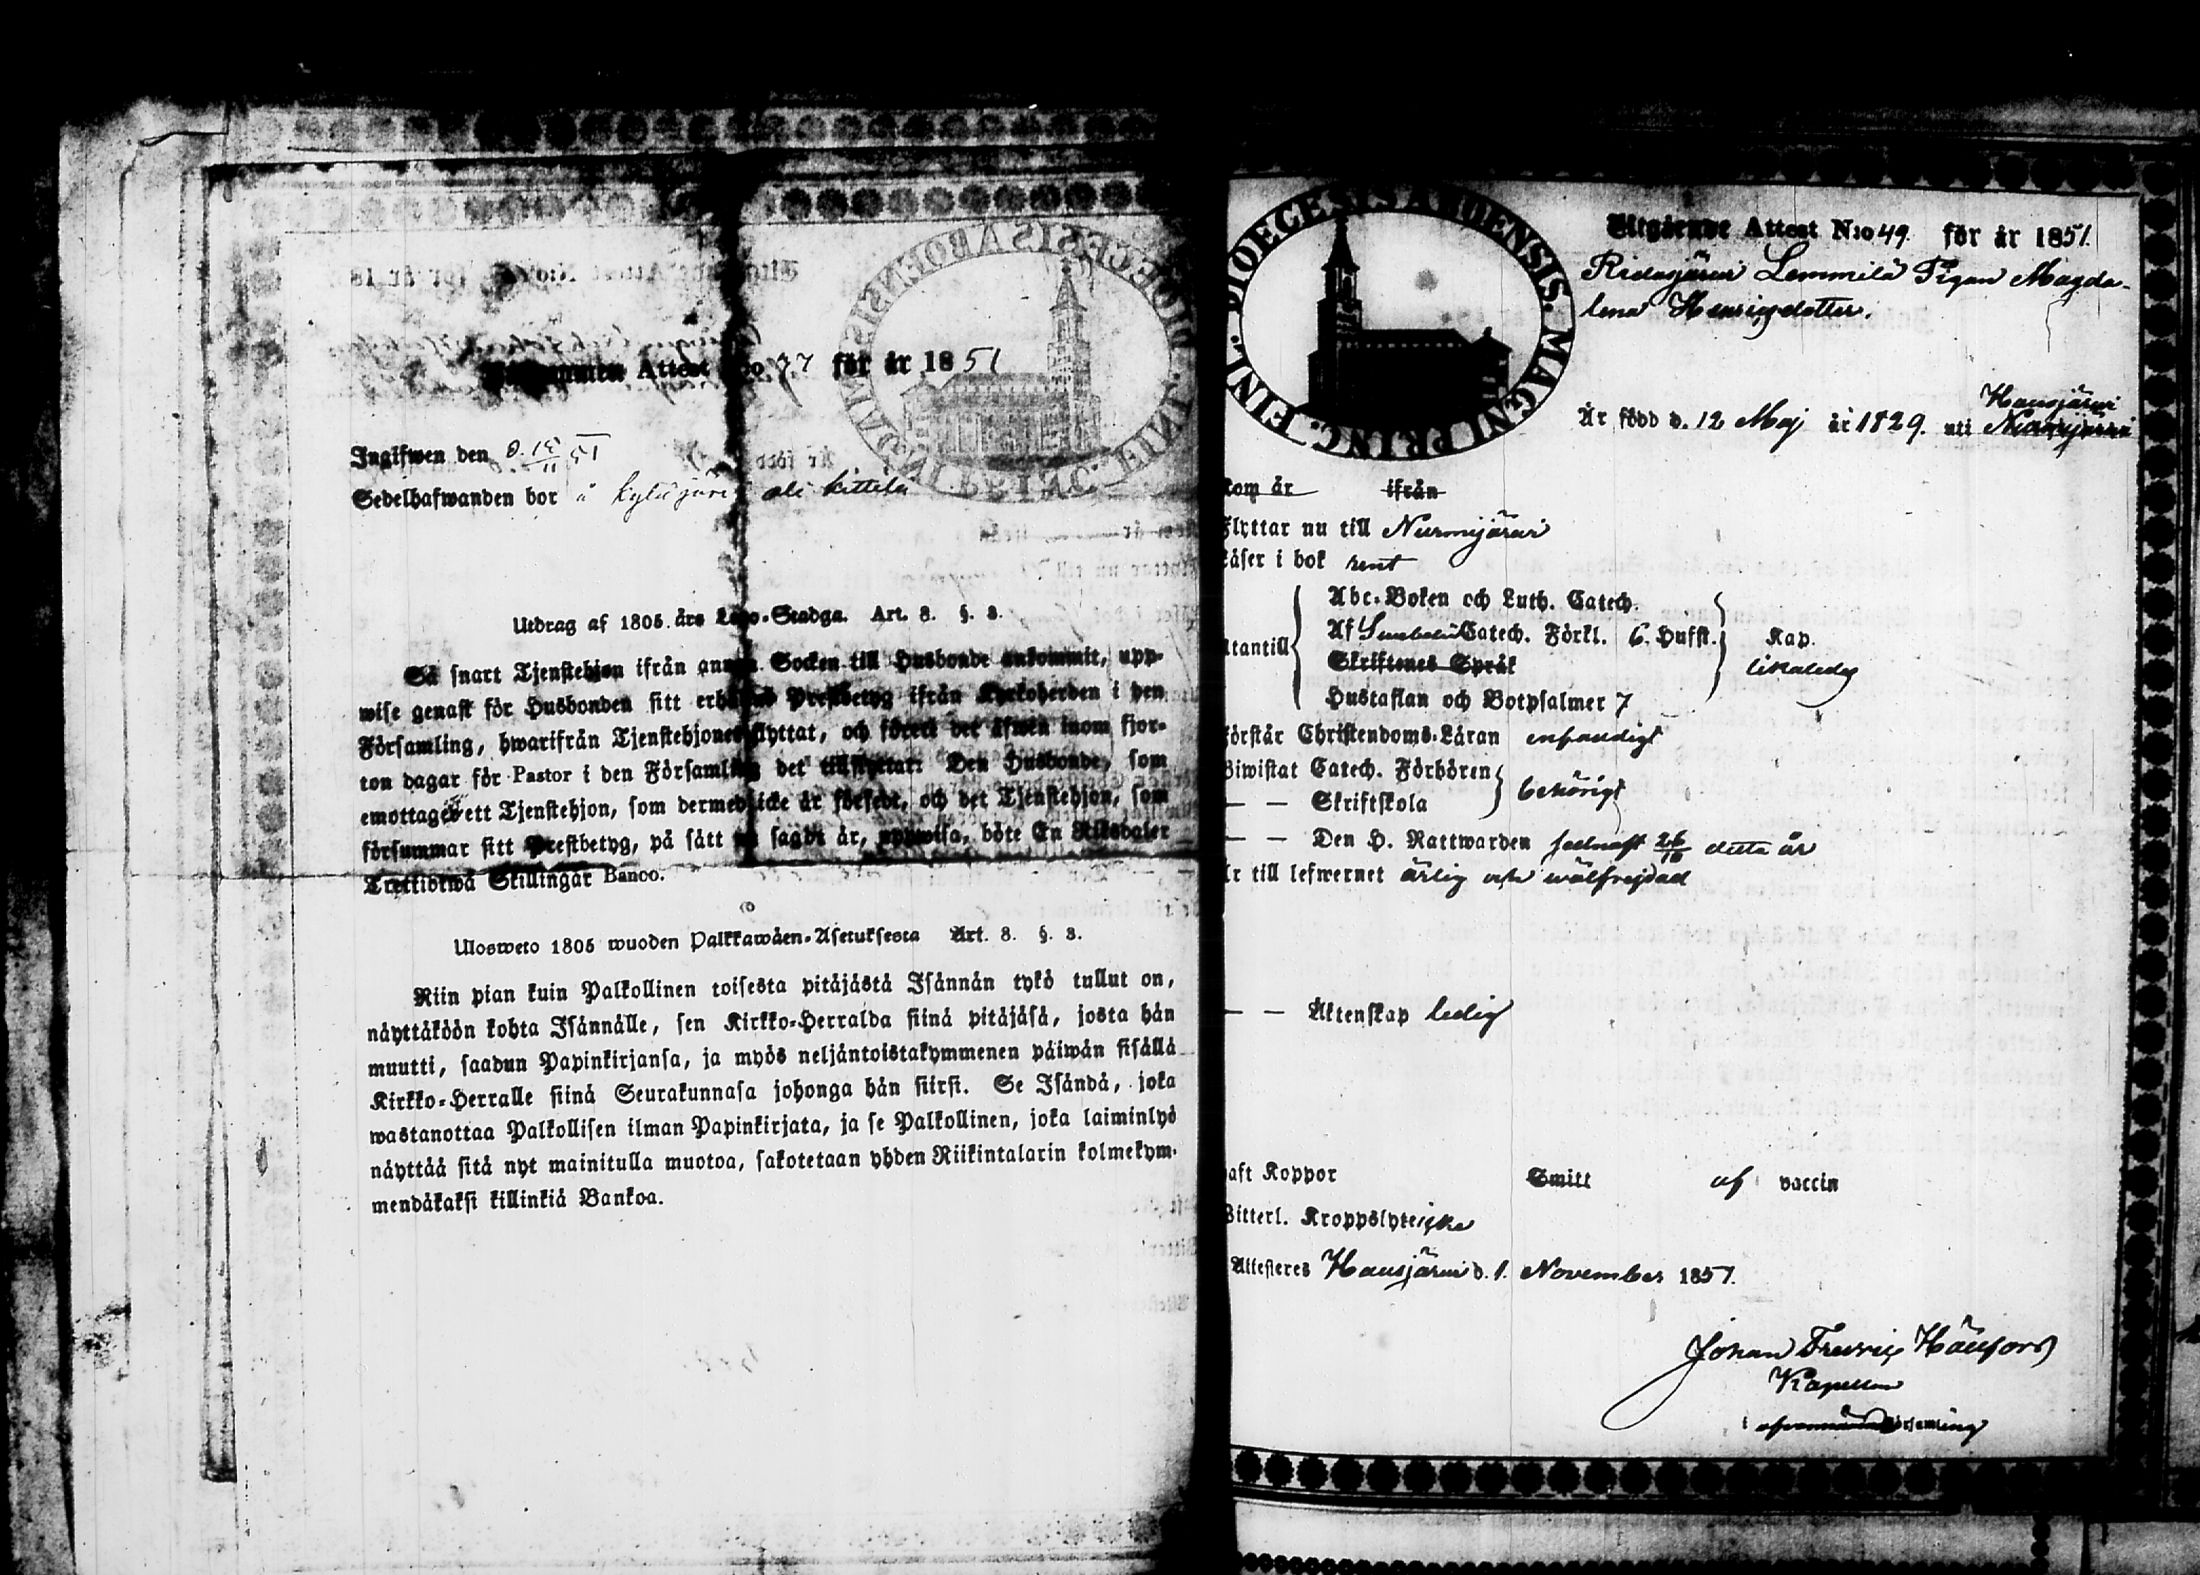 Attest N:o 77 för år 1851
Ingifwen den
Sedelhafwanden bor å Kytäjärvi ali Kittelä
Utdrag af 1805 års Lego-Stadga. Art. 8. §. 3.
Så snart Tjenstehjon ifrån annan Socken till Husbonde ankommit, upp-
wise genast för Husbonden sitt erhållna Prestbetyg ifrån Kyrkoherden i den
Församling, hwarifrån Tjenstehjonet flyttat, och förete det äfwen inom fjor-
ton dagar för Pastor i den Församling det tillflyttar: Den Husbonde, som
emottager ett Tjenstehjon, som dermed icke är försedt, och det Tjenstehjon, som
försummar sitt Prestbetyg, på sätt nu sagdt är, uppwisa, böte En Riksdaler
Trettiotwå Skillingar Banco.
Ulosweto 1805 wuoden Palkkawäen-Asetuksesta Art. 8. §. 3.
Niin pian kuin Palkollinen toisesta pitäjästä Isännän tykö tullut on,
näyttäköön kohta Isännälle, sen Kirkko-Herralda siinä pitäjäsä, josta hän
muutti, saadun Papinkirjansa, ja myös neljäntoistakymmenen päiwän sisällä
Kirkko-Herralle siinä Seurakunnasa johonga hän siirsi. Se Isändä, joka
wastanottaa Palkollisen ilman Papinkirjata, ja se Palkollinen, joka laiminlyö
näyttää sitä nyt mainitulla muotoa, sakotetaan yhden Riikintalarin kolmekym-
mendäkaksi killinkiä Bankoa.
DIOECESIS ABOENSIS. MAGNI PRINC. FINL.
Utgående Attest N:o 49 för år 1851.
Ridasjärvi Lemmilä Pigan Magda-
lena Henricsdotter.
Hausjärvi
Är född d. 12 Maj år 1829. uti Nurmijärvi
kom år ifrån
Flyttar nu till Nurmijärvi
Läser i bok rent
Abc-Boken och Luth. Catech.
Utantill Af Catech. Förkl. 6. Hufst. Kap.
Skriftenes Språk likaledes
Hustaflan och Botpsalmer 7
Förstår Christendoms-Läran enfaldigt
Biwistat Catech. Förhören behörigt
— — Skriftskola
— — Den H. Nattwarden sednast 26/10 detta år
Är till lefwernet ärlig och wälfrejdad
— — Äktenskap ledig
Haft Koppor Smitt af vaccin
Witterl. Kroppslyte icke
Attesteres Hausjärvi d. 1. November 1851.
Johan Fredric Hänfors
Kapellan
i ofvannämnde Församling